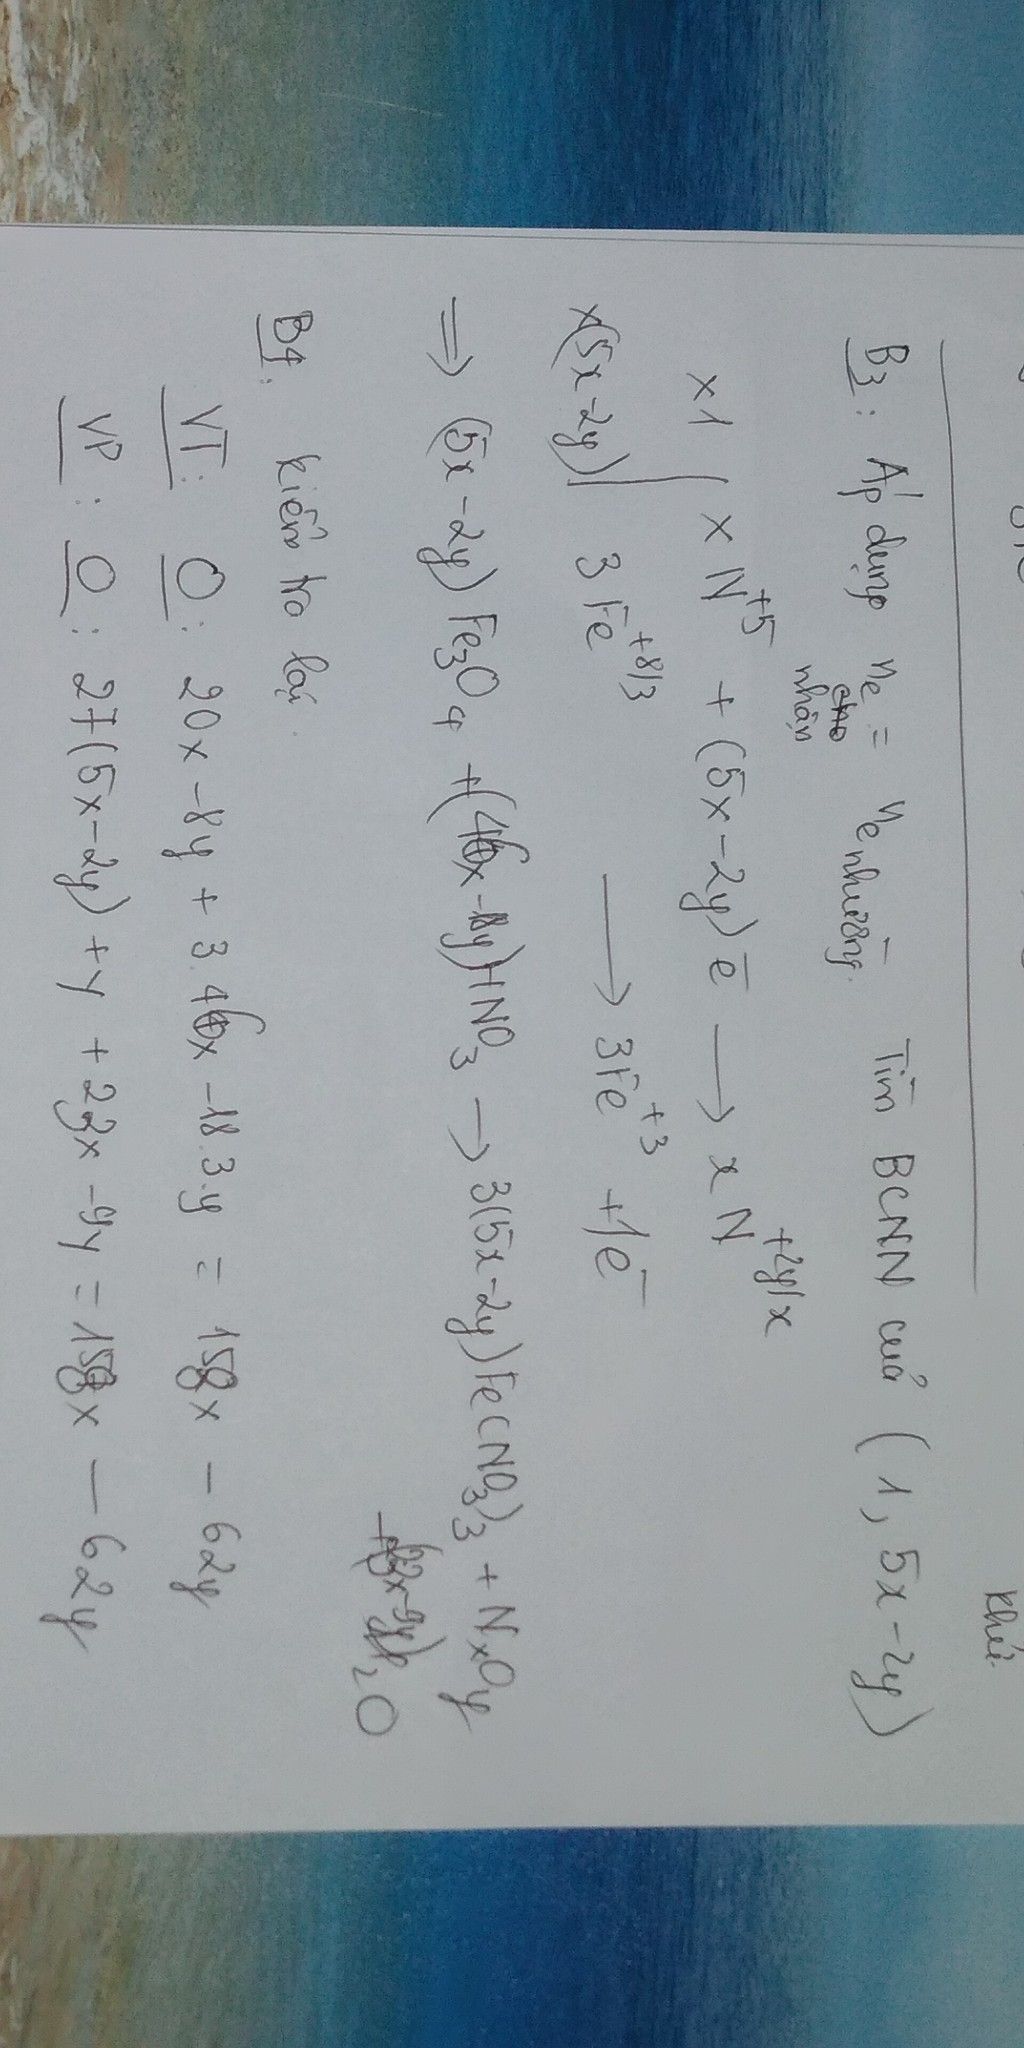 khử
B3: Áp dụng ne nhận = ne nhường. Tìm BCNN của (1, 5x-2y)
x1 | x N+5 + (5x-2y) e → x N+2y/x
x(5x-2y) | 3Fe+8/3 → 3Fe+3 + 1e
⇒ (5x-2y) Fe3O4 + (46x-18y)HNO3 → 3(5x-2y)Fe(NO3)3 + NxOy
+ (23x-9y)H2O
B4: kiểm tra lại.
VT: O: 20x - 8y + 3.46x - 18.3.y = 158x - 62y
VP: O: 27(5x-2y) + y + 23x - 9y = 158x - 62y